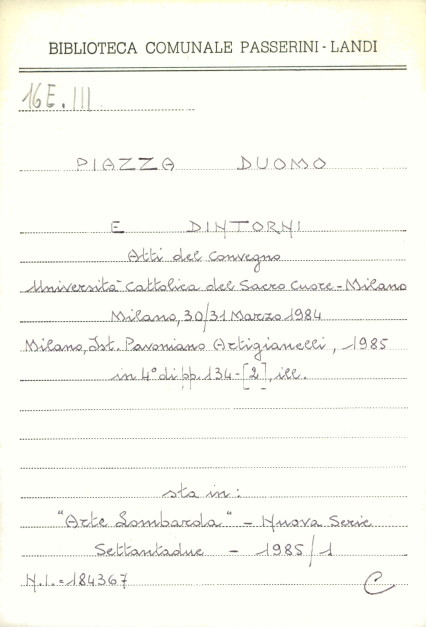 BIBLIOTECA COMUNALE PASSERINI-LANDI
16E.III
PIAZZA DUOMO
E DINTORNI
Atti del Convegno
Università Cattolica del Sacro Cuore - Milano
Milano, 30/31 Marzo 1984
Milano, Ist. Pavoniano Artigianelli, 1985
in 4° di pp. 134-[2], ill.
sta in:
"Arte Lombarda" - Nuova Serie
Settantadue - 1985/1
N.I.=184367
C